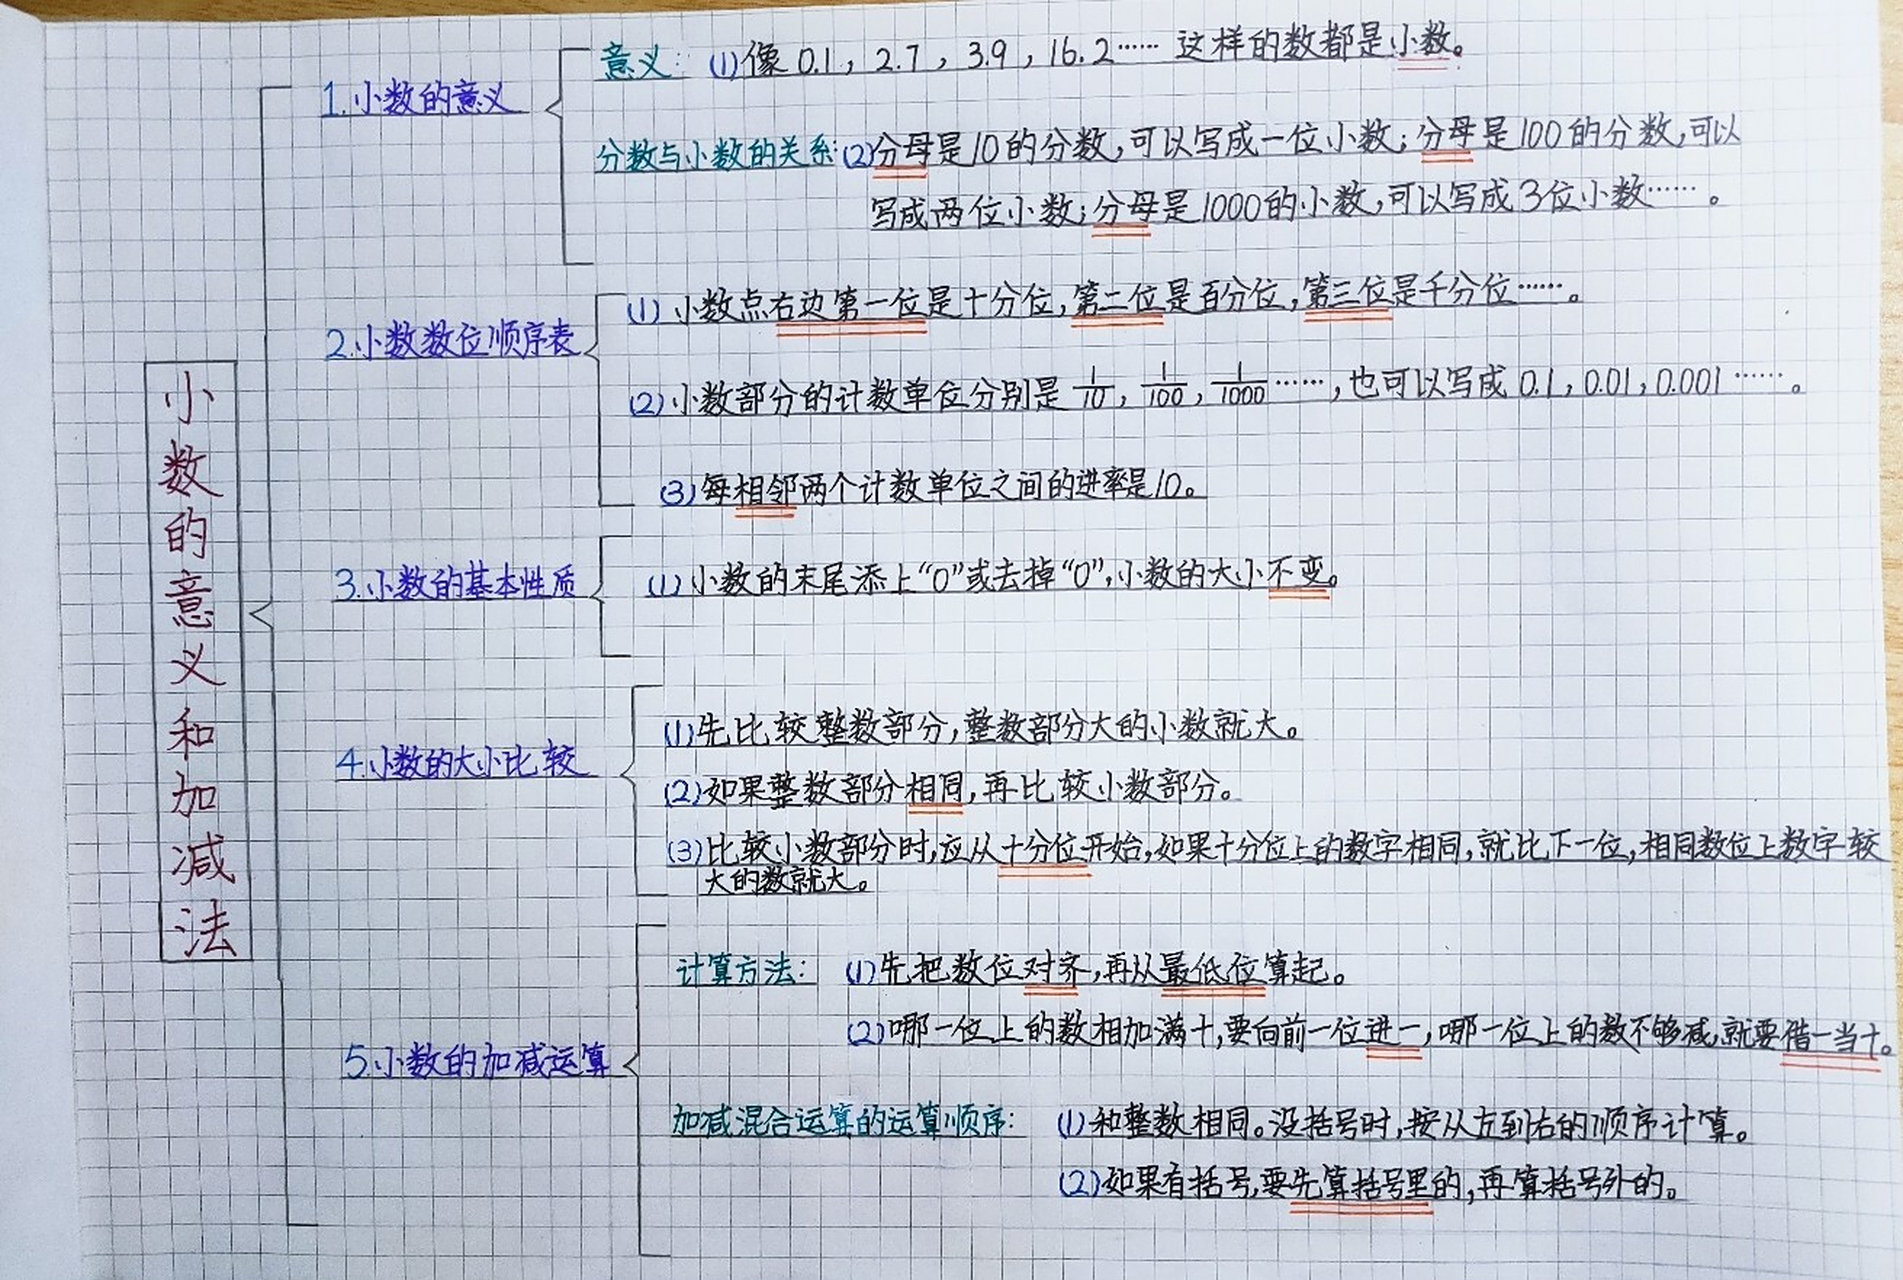 小数的意义和加减法
1.小数的意义
意义：(1)像0.1，2.7，3.9，16.2……这样的数都是小数。
分数与小数的关系：(2)分母是10的分数，可以写成一位小数；分母是100的分数，可以
写成两位小数；分母是1000的小数，可以写成3位小数……。
2.小数数位顺序表
(1)小数点右边第一位是十分位，第二位是百分位，第三位是千分位……。
(2)小数部分的计数单位分别是1/10，1/100，1/1000……，也可以写成0.1，0.01，0.001……。
(3)每相邻两个计数单位之间的进率是10。
3.小数的基本性质
(1)小数的末尾添上“0”或去掉“0”，小数的大小不变。
4.小数的大小比较
(1)先比较整数部分，整数部分大的小数就大。
(2)如果整数部分相同，再比较小数部分。
(3)比较小数部分时，应从十分位开始，如果十分位上的数字相同，就比下一位，相同数位上数字较
大的数就大。
5.小数的加减运算
计算方法：(1)先把数位对齐，再从最低位算起。
(2)哪一位上的数相加满十，要向前一位进一，哪一位上的数不够减，就要借一当十。
加减混合运算的运算顺序：(1)和整数相同。没括号时，按从左到右的顺序计算。
(2)如果有括号，要先算括号里的，再算括号外的。